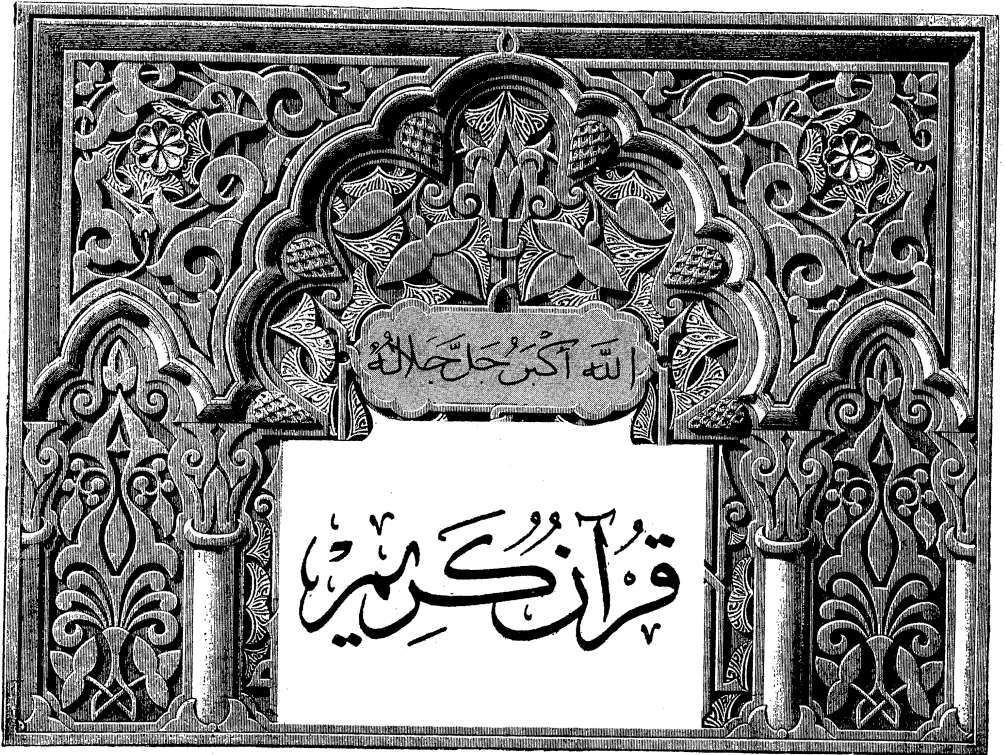 اللَّه أَكْبَرُ جَلَّ جَلَالُهُ
قُرْآنٌ كَرِيمٌ